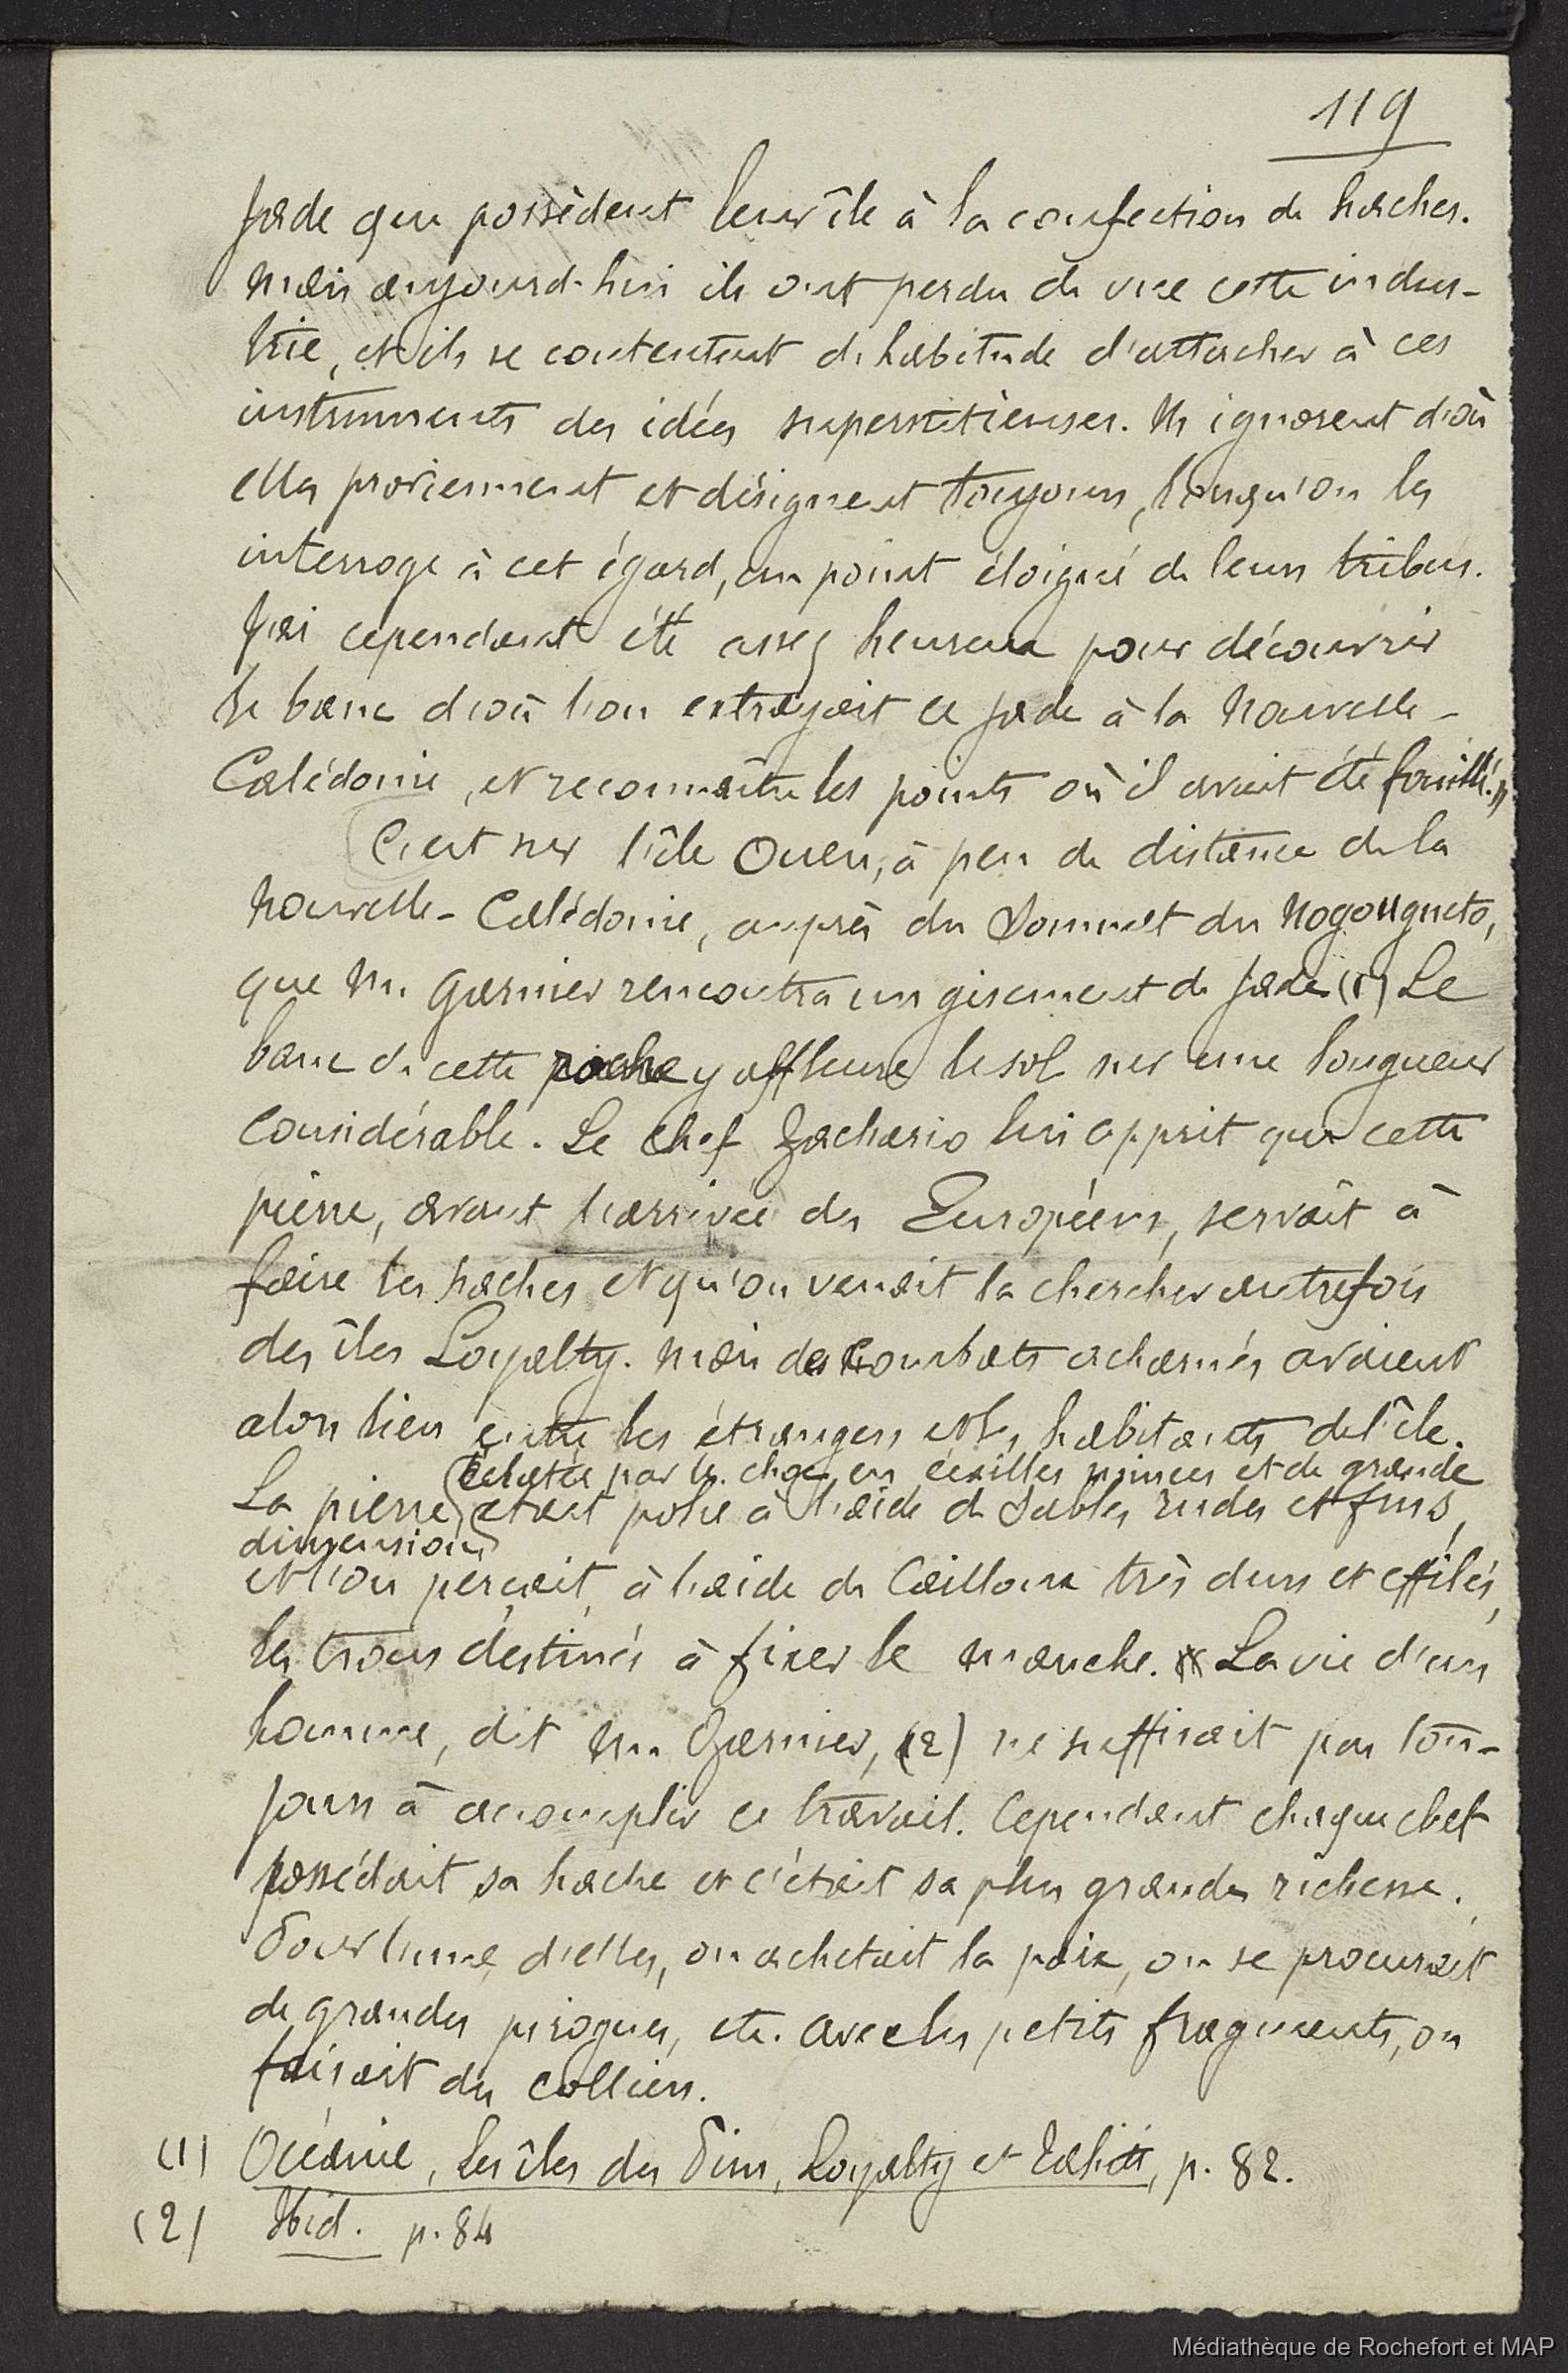 119
jade que possèdent leur île à la confection de haches.
Mais aujourd'hui ils ont perdu de vue cette indus-
trie, et ils se contentent d'habitude d'attacher à ces
instruments des idées superstitieuses. Ils ignorent d'où
elles proviennent et désignent toujours, lorsqu'on les
interroge à cet égard, un point éloigné de leurs tribus.
J'ai cependant été assez heureux pour découvrir
le banc d'où l'on extrayait ce jade à la Nouvelle-
Calédonie, et reconnaître les points où il avait été fouillé."
C'est sur l'île Ouen, à peu de distance de la
Nouvelle-Calédonie, auprès du sommet du Nogougueto,
que M. Garnier rencontra un gisement de jade (1) Le
banc de cette roche y affleure le sol sur une longueur
considérable. Le chef Zachario lui apprit que cette
pierre, avant l'arrivée des Européens, servait à
faire les haches et qu'on venait la chercher autrefois
des îles Loyalty. Mais des combats acharnés avaient
alors lieu entre les étrangers et les habitants de l'île.
éclatée par le choc en écailles minces et de grande
La pierre, était polie à l'aide de sables rudes et fins,
dimension
et l'on perçait, à l'aide de cailloux très durs et effilés,
les trous destinés à fixer le manche. La vie d'un
homme, dit M. Garnier, (2) ne suffisait pas tou-
jours à accomplir ce travail. Cependant chaque chef
possédait sa hache et c'était sa plus grande richesse.
Pour l'une d'elles, on achetait la paix, on se procurait
de grandes pirogues, etc. Avec les petits fragments, on
faisait des colliers.
(1) Océanie, Les îles des Pins, Loyalty et Tahiti, p. 82.
(2) Ibid. p. 84
Médiathèque de Rochefort et MAP